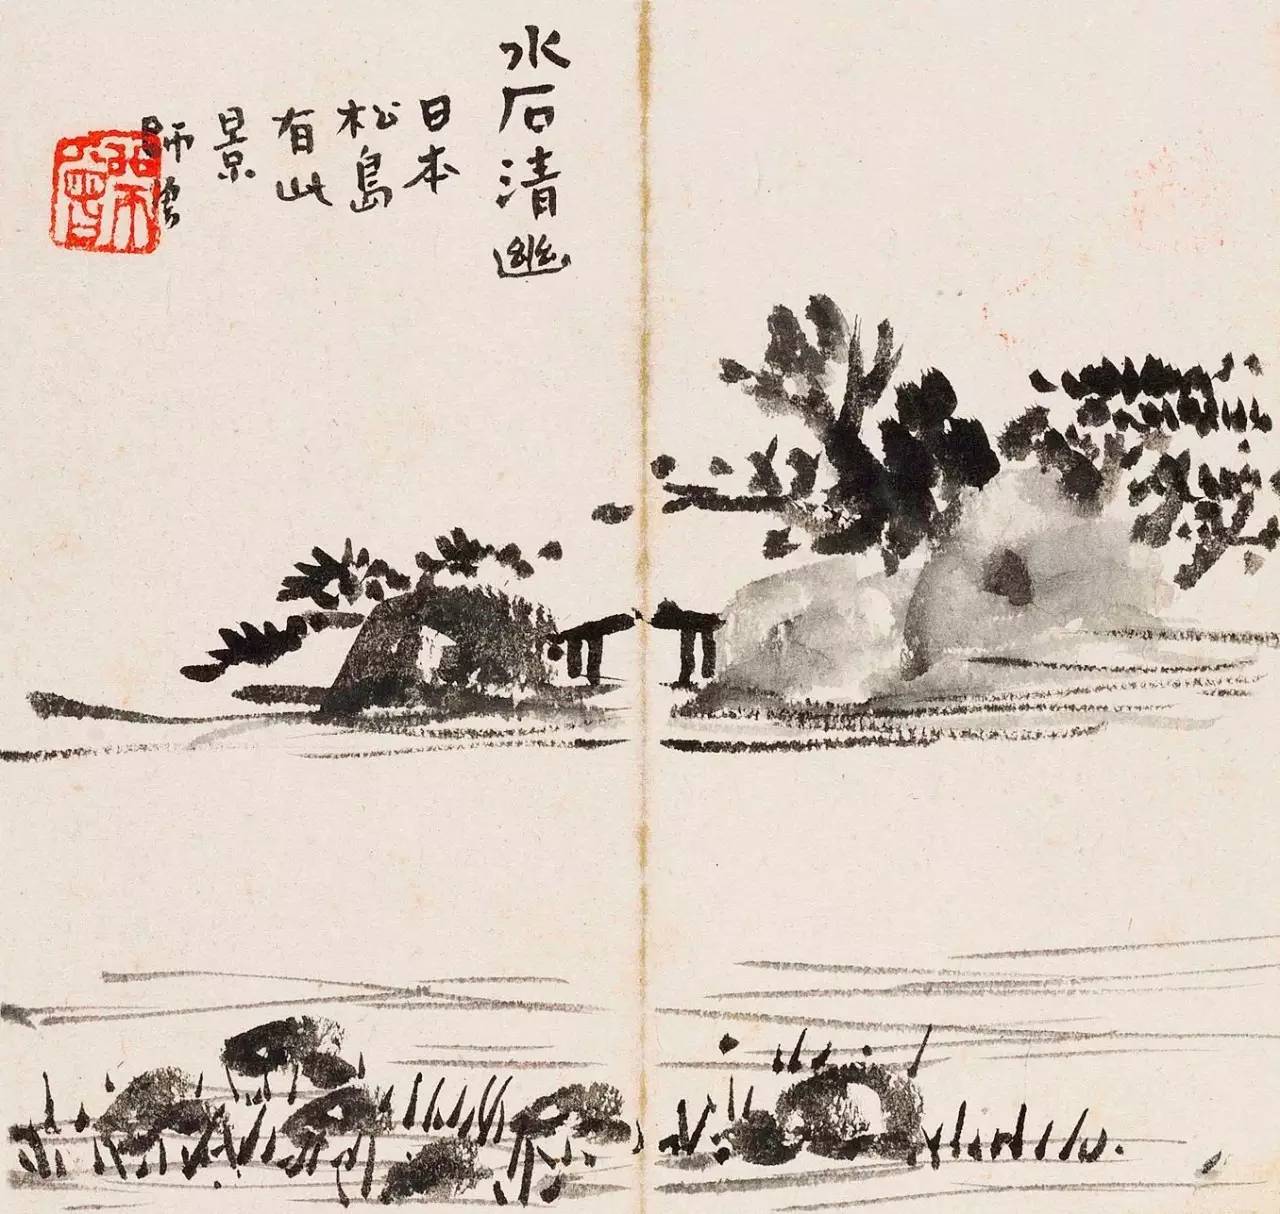 水石清幽
日本
松島
有此
景
師曾